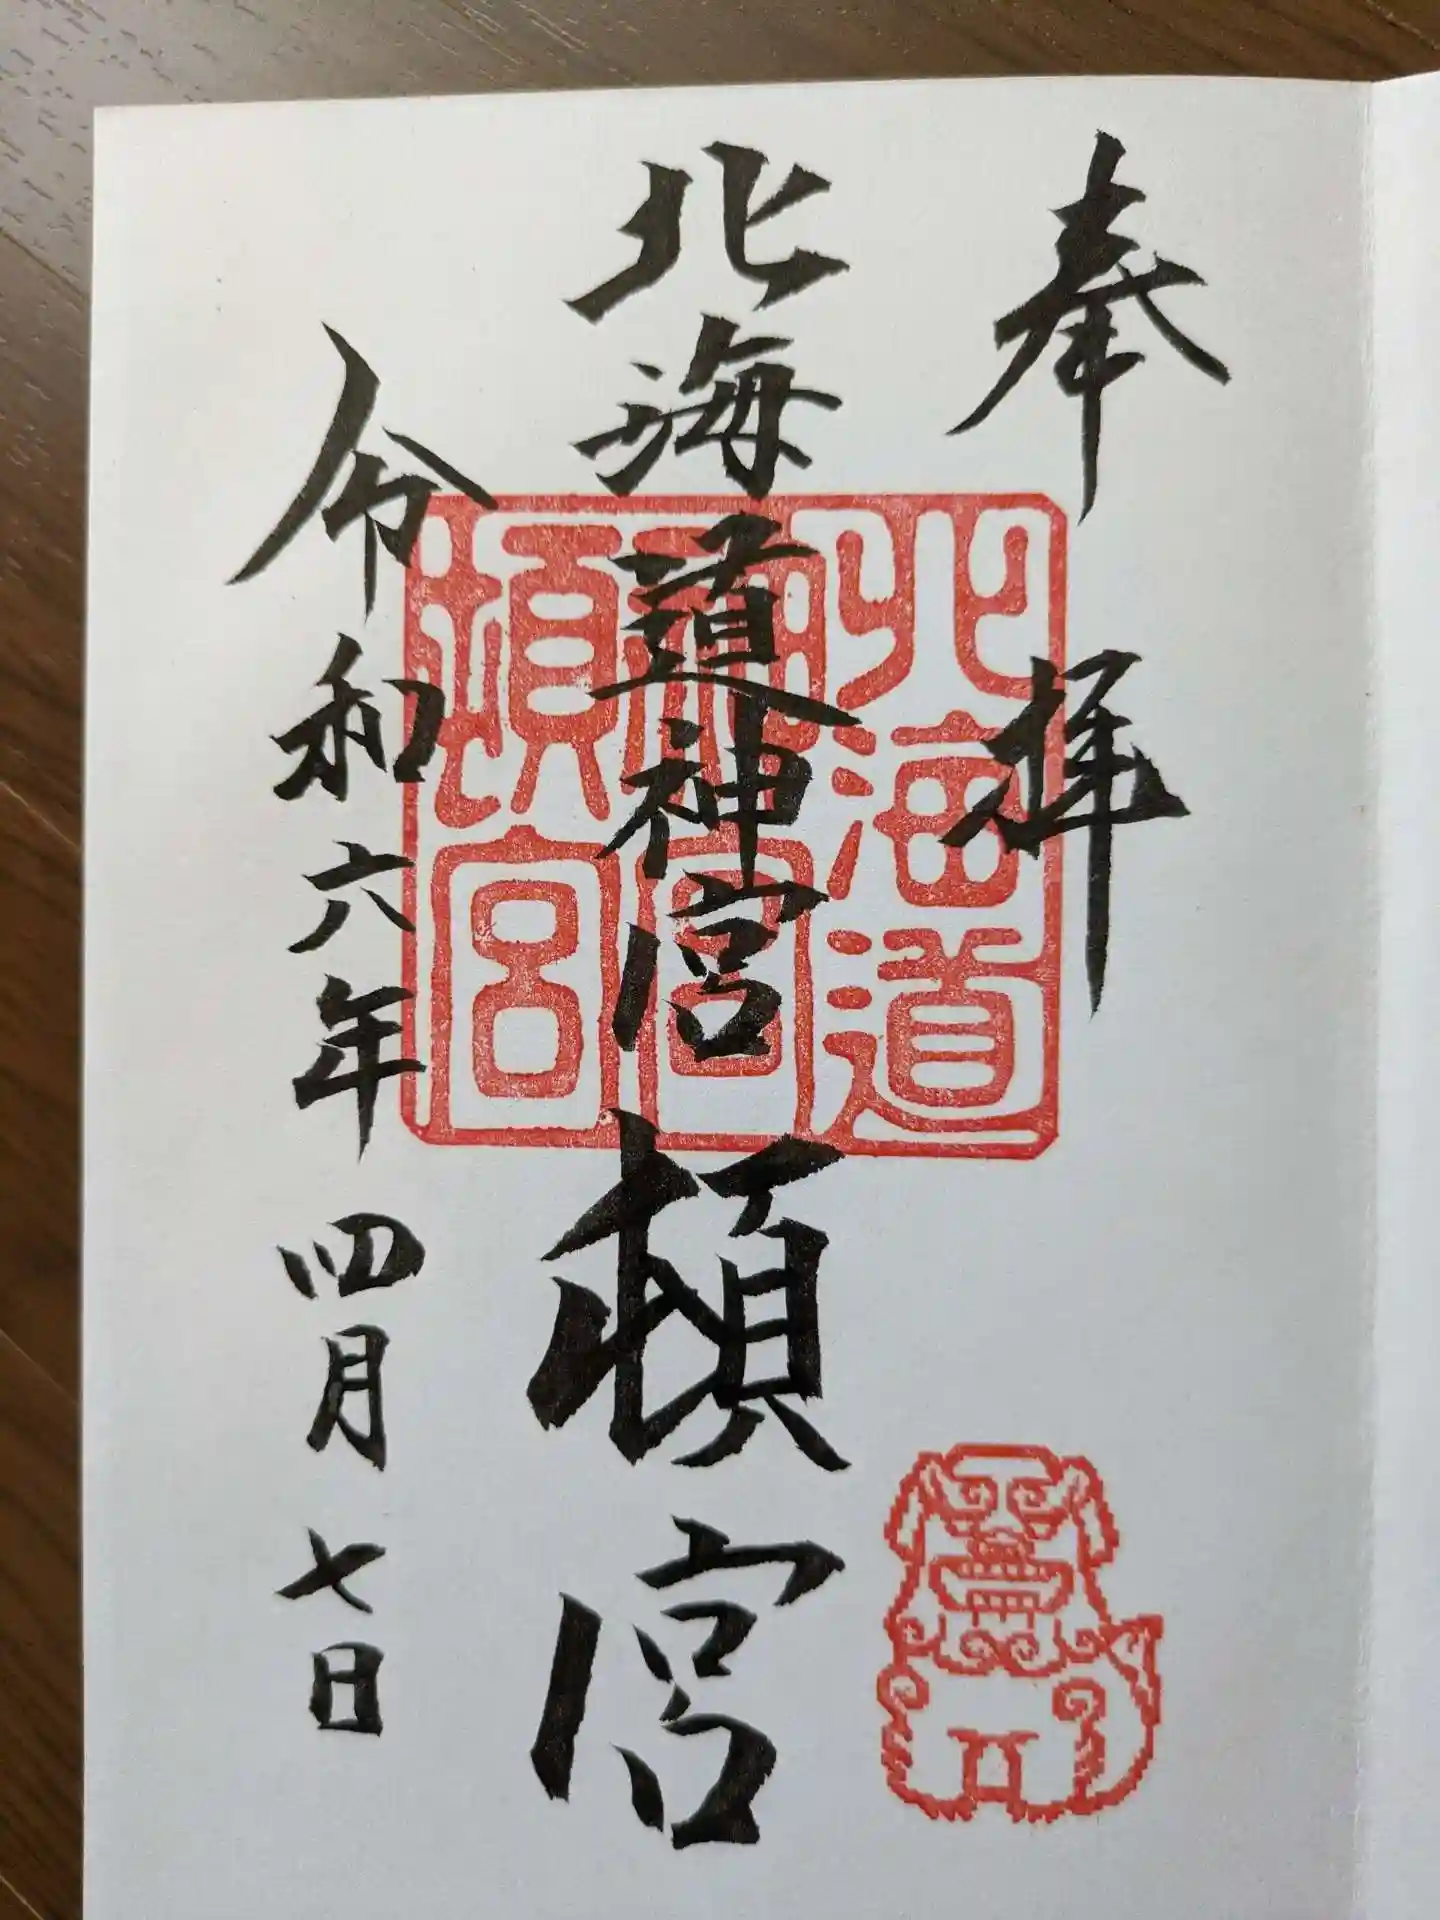 奉拝
北海道神宮頓宮
北海道
神宮
頓宮
令和六年四月七日